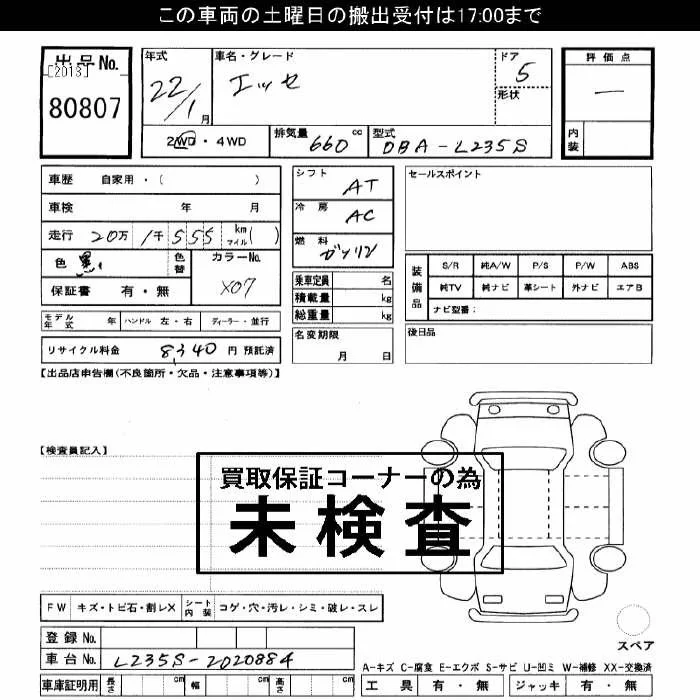 この車両の土曜日の搬出受付は17:00まで
出品No. [2013] 80807
年式 22/1月
車名・グレード エッセ
ドア 5
形状
評価点 —
内装
2WD・4WD
排気量 660 cc
型式 DBA-L235S
車歴 自家用・( )
車検 年 月
走行 20万 1千 555 km マイル( )
色 黒
色替
カラーNo. X07
保証書 有・無
シフト AT
冷房 AC
燃料 ガソリン
乗車定員 名
積載量 kg
総重量 kg
セールスポイント
装備品
S/R 純A/W P/S P/W ABS
純TV 純ナビ 革シート 外ナビ エアB
ナビ型番：
モデル年式 年 ハンドル 左・右 ディーラー・並行
名変期限 月 日
後日品
リサイクル料金 8,340 円 預託済
【出品店申告欄(不良箇所・欠品・注意事項等)】
【検査員記入】
買取保証コーナーの為
未検査
FW キズ・トビ石・割レX シート内装 コゲ・穴・汚レ・シミ・破レ・スレ
登録No.
車台No. L235S-2020884
スペア
A-キズ C-腐食 E-エクボ S-サビ U-凹ミ W-補修 XX-交換済
車庫証明用 長さ cm 幅 cm 高さ cm
工具 有・無 ジャッキ 有・無